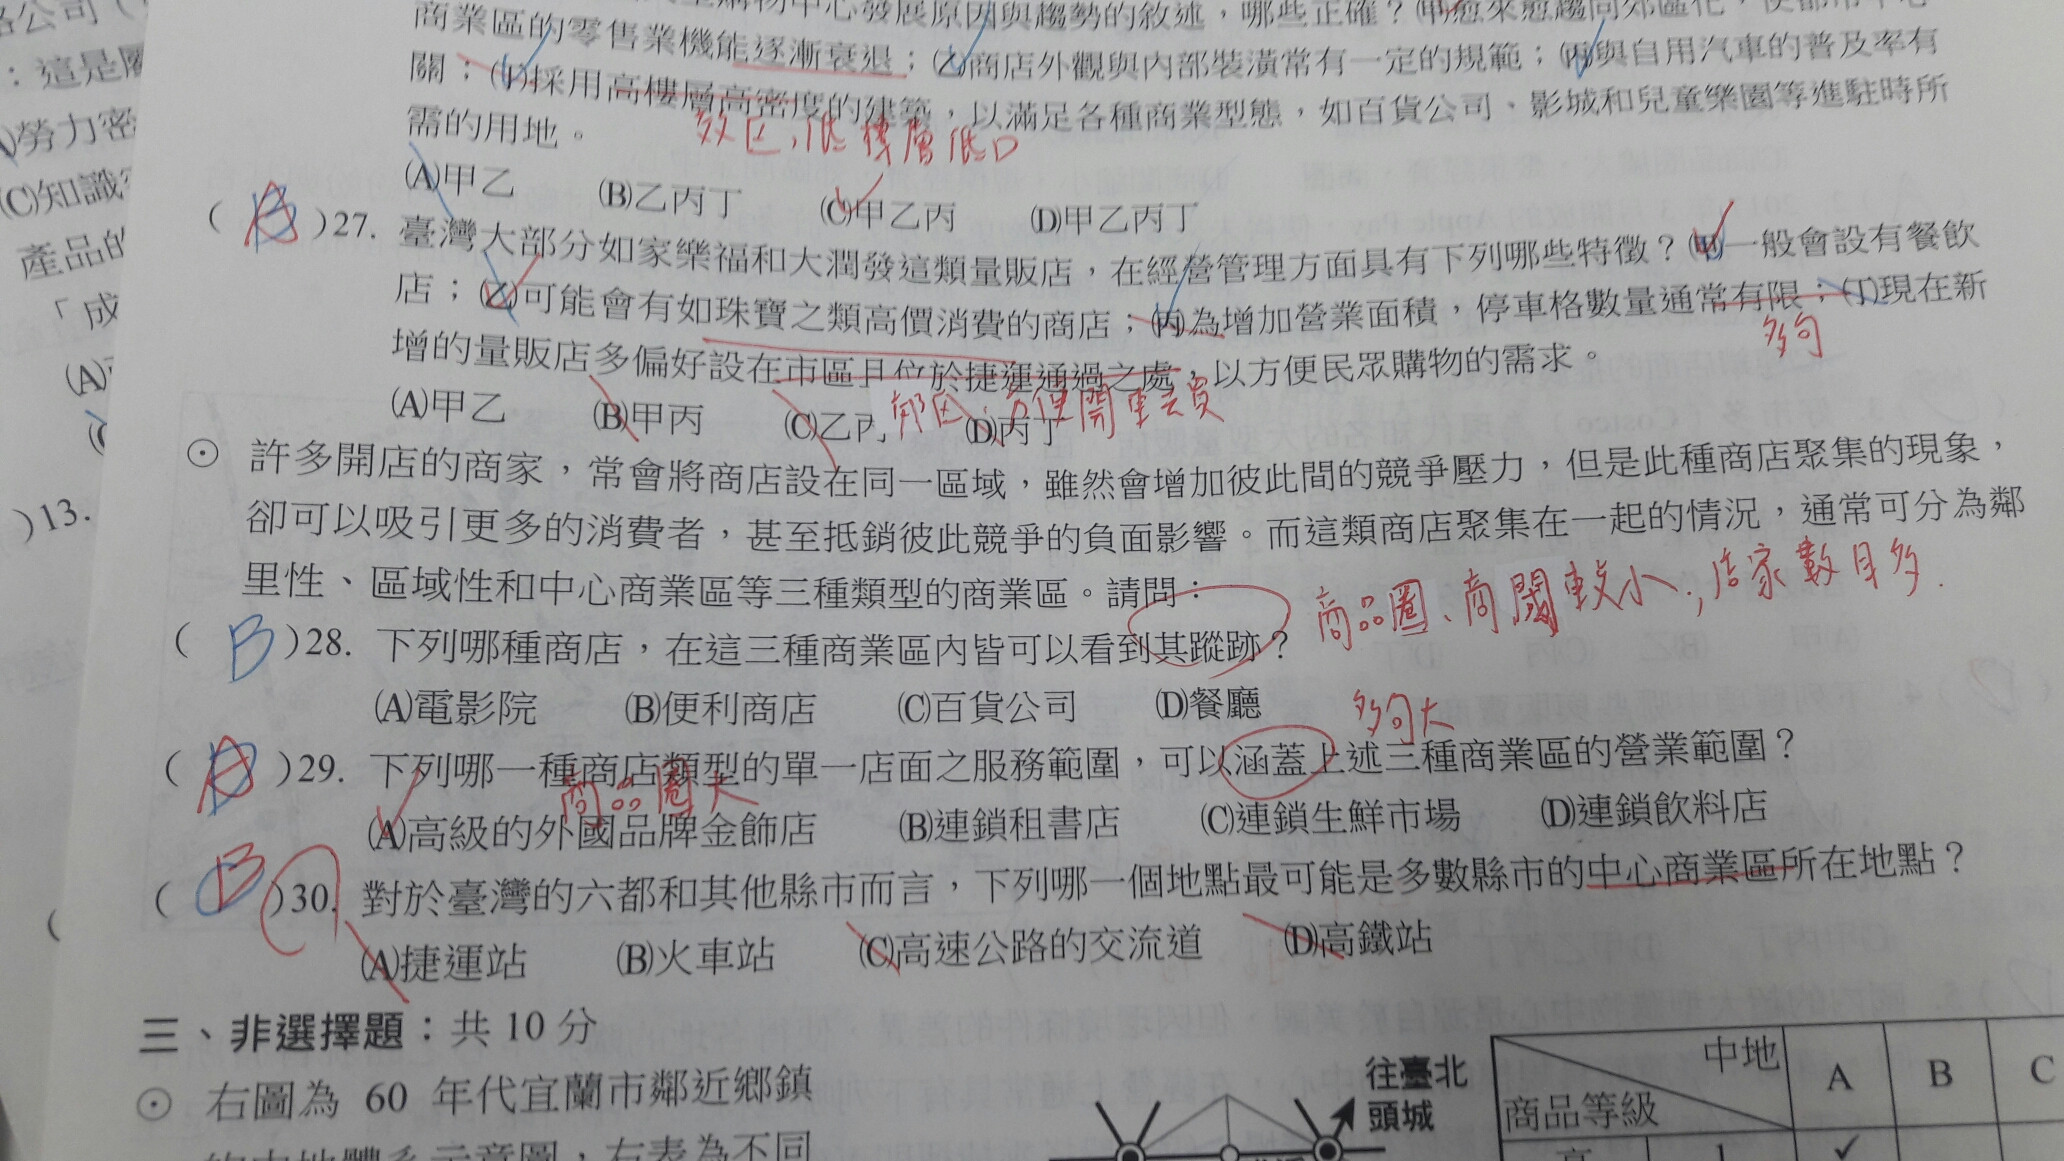 購物中心發展原因與趨勢的敘述，哪些正確？㈙愈來愈趨向郊區化，使都市中心
商業區的零售業機能逐漸衰退；㈚商店外觀與內部裝潢常有一定的規範；㈛與自用汽車的普及率有
關；㈜採用高樓層高密度的建築，以滿足各種商業型態，如百貨公司、影城和兒童樂園等進駐時所
需的用地。
效區，低樓層低
(A)甲乙 (B)乙丙丁 (C)甲乙丙 (D)甲乙丙丁
( A )27. 臺灣大部分如家樂福和大潤發這類量販店，在經營管理方面具有下列哪些特徵？(甲)一般會設有餐飲
店；(乙)可能會有如珠寶之類高價消費的商店；(丙)為增加營業面積，停車格數量通常有限；(丁)現在新
多
增的量販店多偏好設在市區且位於捷運通過之處，以方便民眾購物的需求。
郊區；方便開車去買
(A)甲乙 (B)甲丙 (C)乙丙 (D)丙丁
⊙ 許多開店的商家，常會將商店設在同一區域，雖然會增加彼此間的競爭壓力，但是此種商店聚集的現象，
卻可以吸引更多的消費者，甚至抵銷彼此競爭的負面影響。而這類商店聚集在一起的情況，通常可分為鄰
里性、區域性和中心商業區等三種類型的商業區。請問：
商品圈、商閾較小，店家數目多.
( B )28. 下列哪種商店，在這三種商業區內皆可以看到其蹤跡？
(A)電影院 (B)便利商店 (C)百貨公司 (D)餐廳
大
( A )29. 下列哪一種商店類型的單一店面之服務範圍，可以涵蓋上述三種商業區的營業範圍？
商品圈大
(A)高級的外國品牌金飾店 (B)連鎖租書店 (C)連鎖生鮮市場 (D)連鎖飲料店
( B )30. 對於臺灣的六都和其他縣市而言，下列哪一個地點最可能是多數縣市的中心商業區所在地點？
(A)捷運站 (B)火車站 (C)高速公路的交流道 (D)高鐵站
三、非選擇題：共 10 分
⊙ 右圖為 60 年代宜蘭市鄰近鄉鎮
的中地體系示意圖，右表為不同
往臺北
頭城
中地 A B C
商品等級
高 1 ✓
公司（
：這是
勞力密
(C)知識
產品的
「成
(A)
)13.